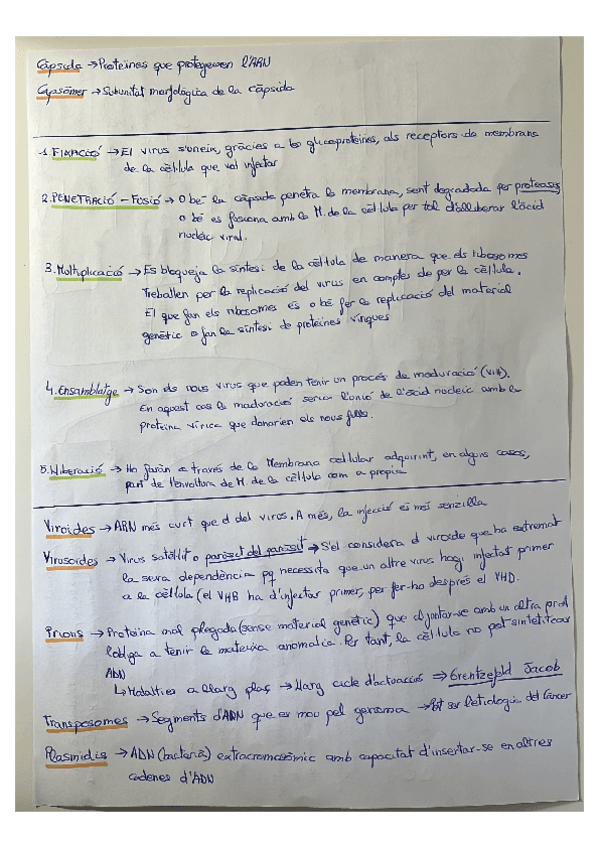 Càpsida → Proteïnes que protegeixen l'ARN
Capsòmer → Subunitat morfològica de la càpsida
1. FIXACIÓ → El virus s'uneix, gràcies a les glicoproteïnes, als receptors de membrana
de la cèl·lula que vol infectar
2. PENETRACIÓ - FUSIÓ → O bé la càpsida penetra la membrana, sent degradada per proteases
o bé es fusiona amb la M. de la cèl·lula per tal d'alliberar l'àcid
nucleic viral.
3. Multiplicació → Es bloqueja la síntesi de la cèl·lula de manera que els ribosomes
Treballen per la replicació del virus en comptes de per la cèl·lula.
El que fan els ribosomes és o bé fer la replicació del material
genètic o fan la síntesi de proteïnes víriques
4. Ensamblatge → Son els nous virus que poden tenir un procés de maduració (VIH).
En aquest cas la maduració seria l'unió de l'àcid nucleic amb la
proteïna vírica que donarien els nous fills.
5. Alliberació → Ho faran a través de la Membrana cel·lular adquirint, en alguns casos,
part de l'envoltura de M. de la cèl·lula com a pròpia
Viroides → ARN més curt que el del virus. A més, la infecció és més senzilla
Virusoides → Virus satèl·lit o paràsit del paràsit → S'el considera el viroide que ha extremat
la seva dependència pq necessita que un altre virus hagi infectat primer
a la cèl·lula (el VHB ha d'infectar primer, per fer-ho després el VHD.
Prions → Proteïna mal plegada (sense material genètic) que al juntar-se amb un altra prot
l'obliga a tenir la mateixa anomalia. Per tant, la cèl·lula no pot sintetitzar
ADN
↳ Malalties a llarg plaç → Llarg cicle d'actuació → Crentzefeld Jacob
Transposomes → Segments d'ADN que es mou pel genoma → Pot ser l'etiologia del càncer
Plasmidis → ADN (bacterià) extracromosòmic amb capacitat d'insertar-se en altres
cadenes d'ADN